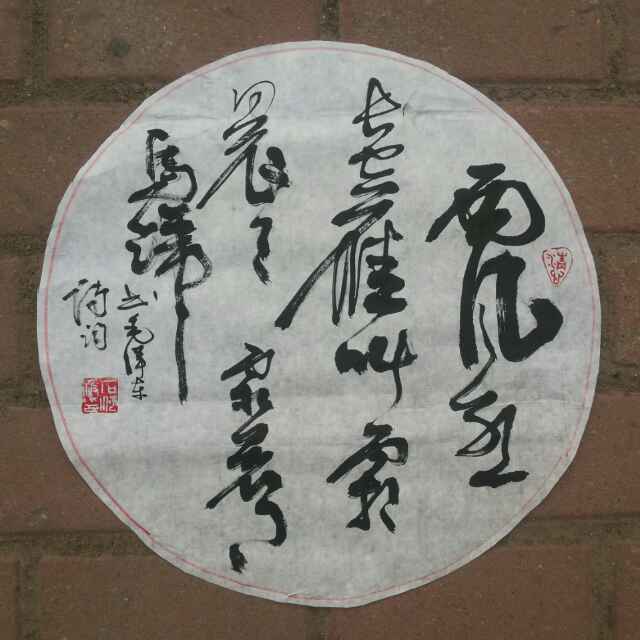 西风烈
长空雁叫霜
晨月霜晨月
马蹄
书毛泽东
诗词